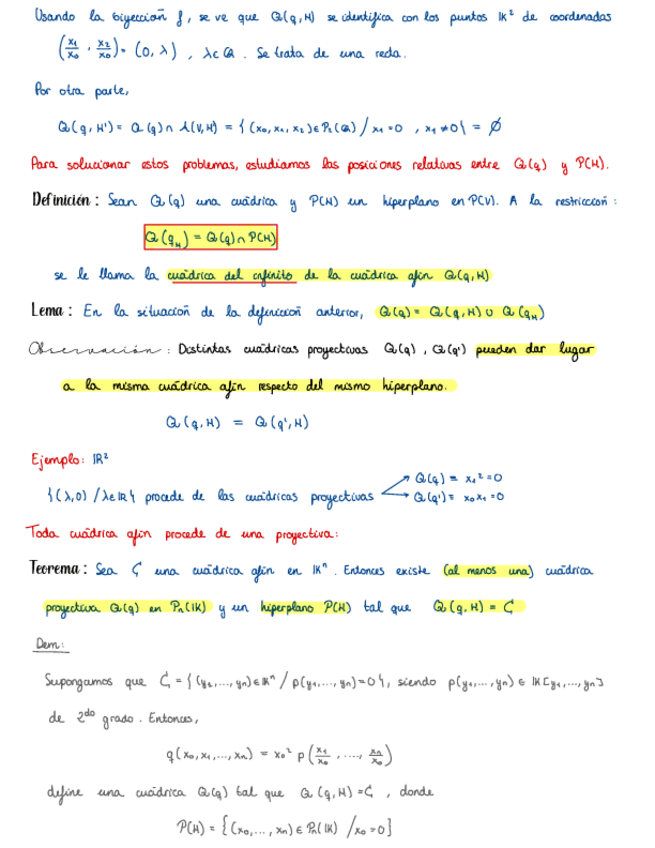 Usando la biyección f, se ve que Q(q,H) se identifica con los puntos IK² de coordenadas
(x₁/x₀, x₂/x₀) = (0, λ), λ∈Q. Se trata de una recta.
Por otra parte,
Q(q, H') = Q(q) ∩ A(V,H) = {(x₀, x₁, x₂) ∈ P₂(Q) / x₁ = 0, x₁ ≠ 0} = ∅
Para solucionar estos problemas, estudiamos las posiciones relativas entre Q(q) y P(H).
Definición: Sean Q(q) una cuádrica y P(H) un hiperplano en P(V). A la restricción:
Q(q_H) = Q(q) ∩ P(H)
se le llama la cuádrica del infinito de la cuádrica afín Q(q,H)
Lema: En la situación de la definición anterior, Q(q) = Q(q,H) ∪ Q(q_H)
Observación: Distintas cuádricas proyectivas Q(q), Q(q') pueden dar lugar
a la misma cuádrica afín respecto del mismo hiperplano.
Q(q,H) = Q(q',H)
Ejemplo: IR²
{(λ,0) / λ∈IR} procede de las cuádricas proyectivas
Q(q) = x₁² = 0
Q(q') = x₀x₁ = 0
Toda cuádrica afín procede de una proyectiva:
Teorema: Sea C una cuádrica afín en IKⁿ. Entonces existe (al menos una) cuádrica
proyectiva Q(q) en Pₙ(IK) y un hiperplano P(H) tal que Q(q,H) = C
Dem:
Supongamos que C = {(y₁,..., yₙ) ∈ IKⁿ / p(y₁,..., yₙ) = 0}, siendo p(y₁,..., yₙ) ∈ IK[y₁,..., yₙ]
de 2do grado. Entonces,
q(x₀, x₁,..., xₙ) = x₀² p(x₁/x₀, ...., xₙ/x₀)
define una cuádrica Q(q) tal que Q(q,H) = C, donde
P(H) = {(x₀,..., xₙ) ∈ Pₙ(IK) / x₀ = 0}